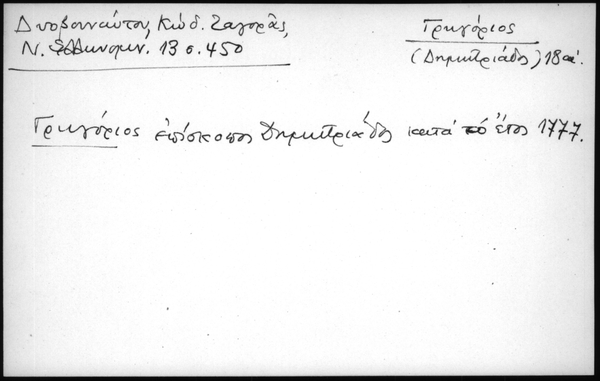 Δυοβουνιώτου, Κώδ. Ζαγορᾶς,
Ν. Ἑλληνομν. 13 σ. 450
Γρηγόριος
(Δημητριάδος) 18 αἰ.
Γρηγόριος ἐπίσκοπος Δημητριάδος κατὰ τὸ ἔτος 1777.